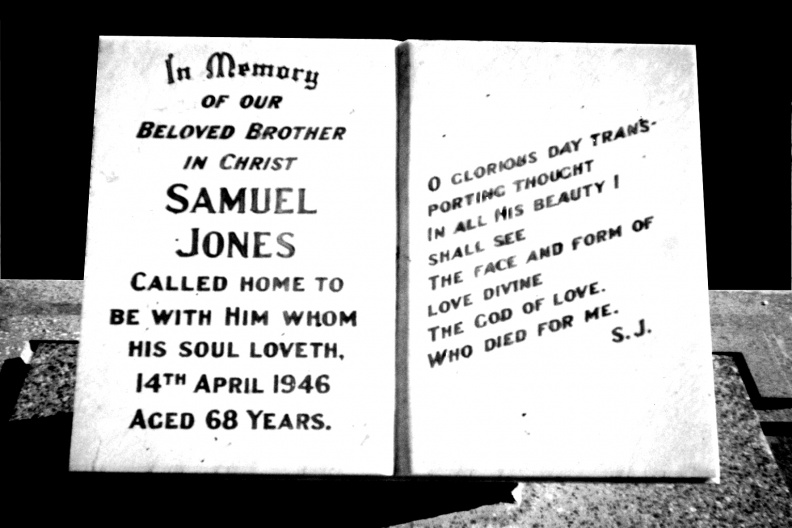 In Memory
OF OUR
BELOVED BROTHER
IN CHRIST
SAMUEL
JONES
CALLED HOME TO
BE WITH HIM WHOM
HIS SOUL LOVETH,
14TH APRIL 1946
AGED 68 YEARS.
O GLORIOUS DAY TRANS-
PORTING THOUGHT
IN ALL HIS BEAUTY I
SHALL SEE
THE FACE AND FORM OF
LOVE DIVINE
THE GOD OF LOVE.
WHO DIED FOR ME.
S.J.